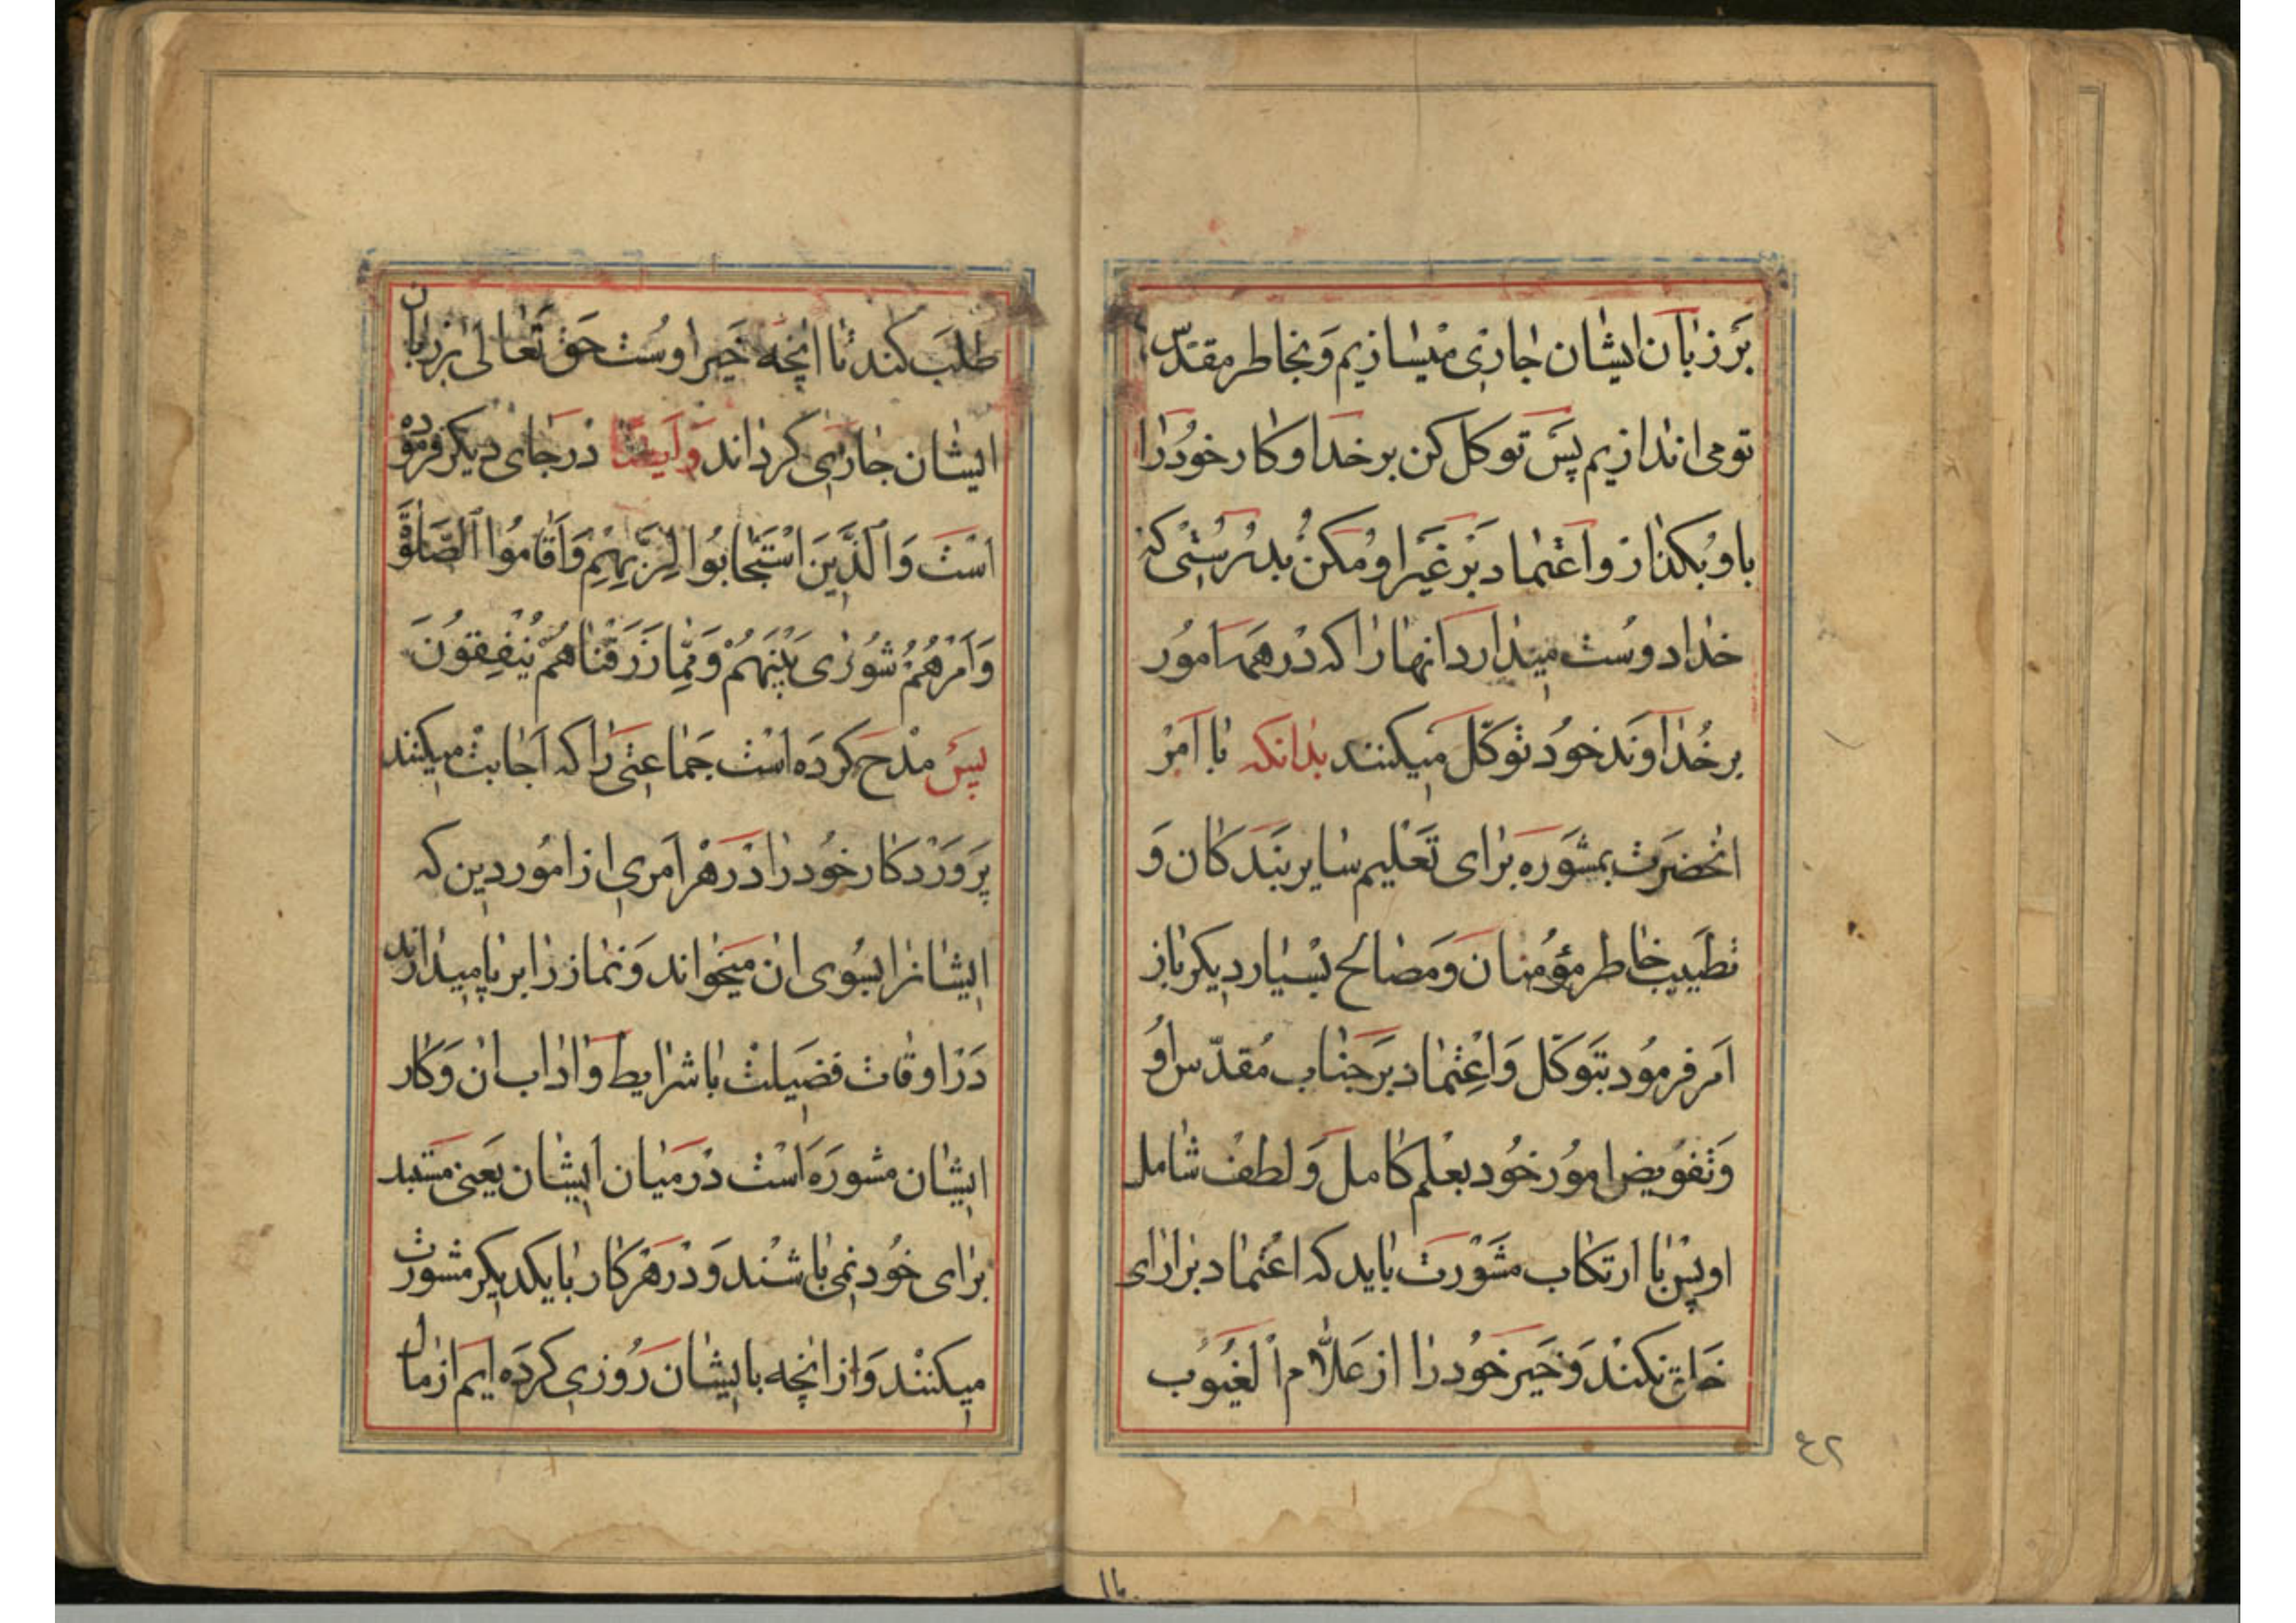 بَر زبان ایشان جاری میسازیم وَ بخاطر مقدّس
تو می اندازیم پَس توکل کن بر خدا و کار خودرا
باو بکذار و اعتماد بَر غیر او مکن بدرستی که
خدا دوست میدارد انها را که در همه امور
بر خداوند خود توکّل میکنند بدانکه با امر
انحضرت بمشوره برای تعلیم سایر بندکان وَ
تطییب خاطر مؤمنان وَ مصالح بسیار دیکر باز
امر فرمود بتوکّل وَ اعتماد بر جناب مُقدّس او
وَ تفویض امور خود بعلم کامل وَ لطف شامل
او پس با ارتکاب مشورت باید که اعتماد بر ارای
خلق نکند وَ خیر خود را از علّام الغیوب
طلب کند تا انچه خیر اوست حق تعالی بر زبان
ایشان جاری کرداند وَ ایضا در جای دیکر فرموده
است وَالَّذینَ اسْتَجابُوا لِرَبِّهِمْ وَاَقامُوا الصَّلوةَ
وَاَمْرُهُمْ شُورٰی بَیْنَهُمْ وَمِمّا رَزَقْناهُمْ یُنْفِقُونَ
پس مدح کرده است جماعتی را که اجابت میکنند
پروردکار خود را در هر امری از امور دین که
ایشانرا بسوی ان میخواند وَ نماز را بر پا میدارند
در اوقات فضیلت با شرایط وَ اداب ان وَ کار
ایشان مشوره است در میان ایشان یعنی مستبد
برای خود نمی باشند وَ در هر کار با یکدیکر مشورت
میکنند وَ از انچه با ایشان روزی کرده ایم از مال
٤٢